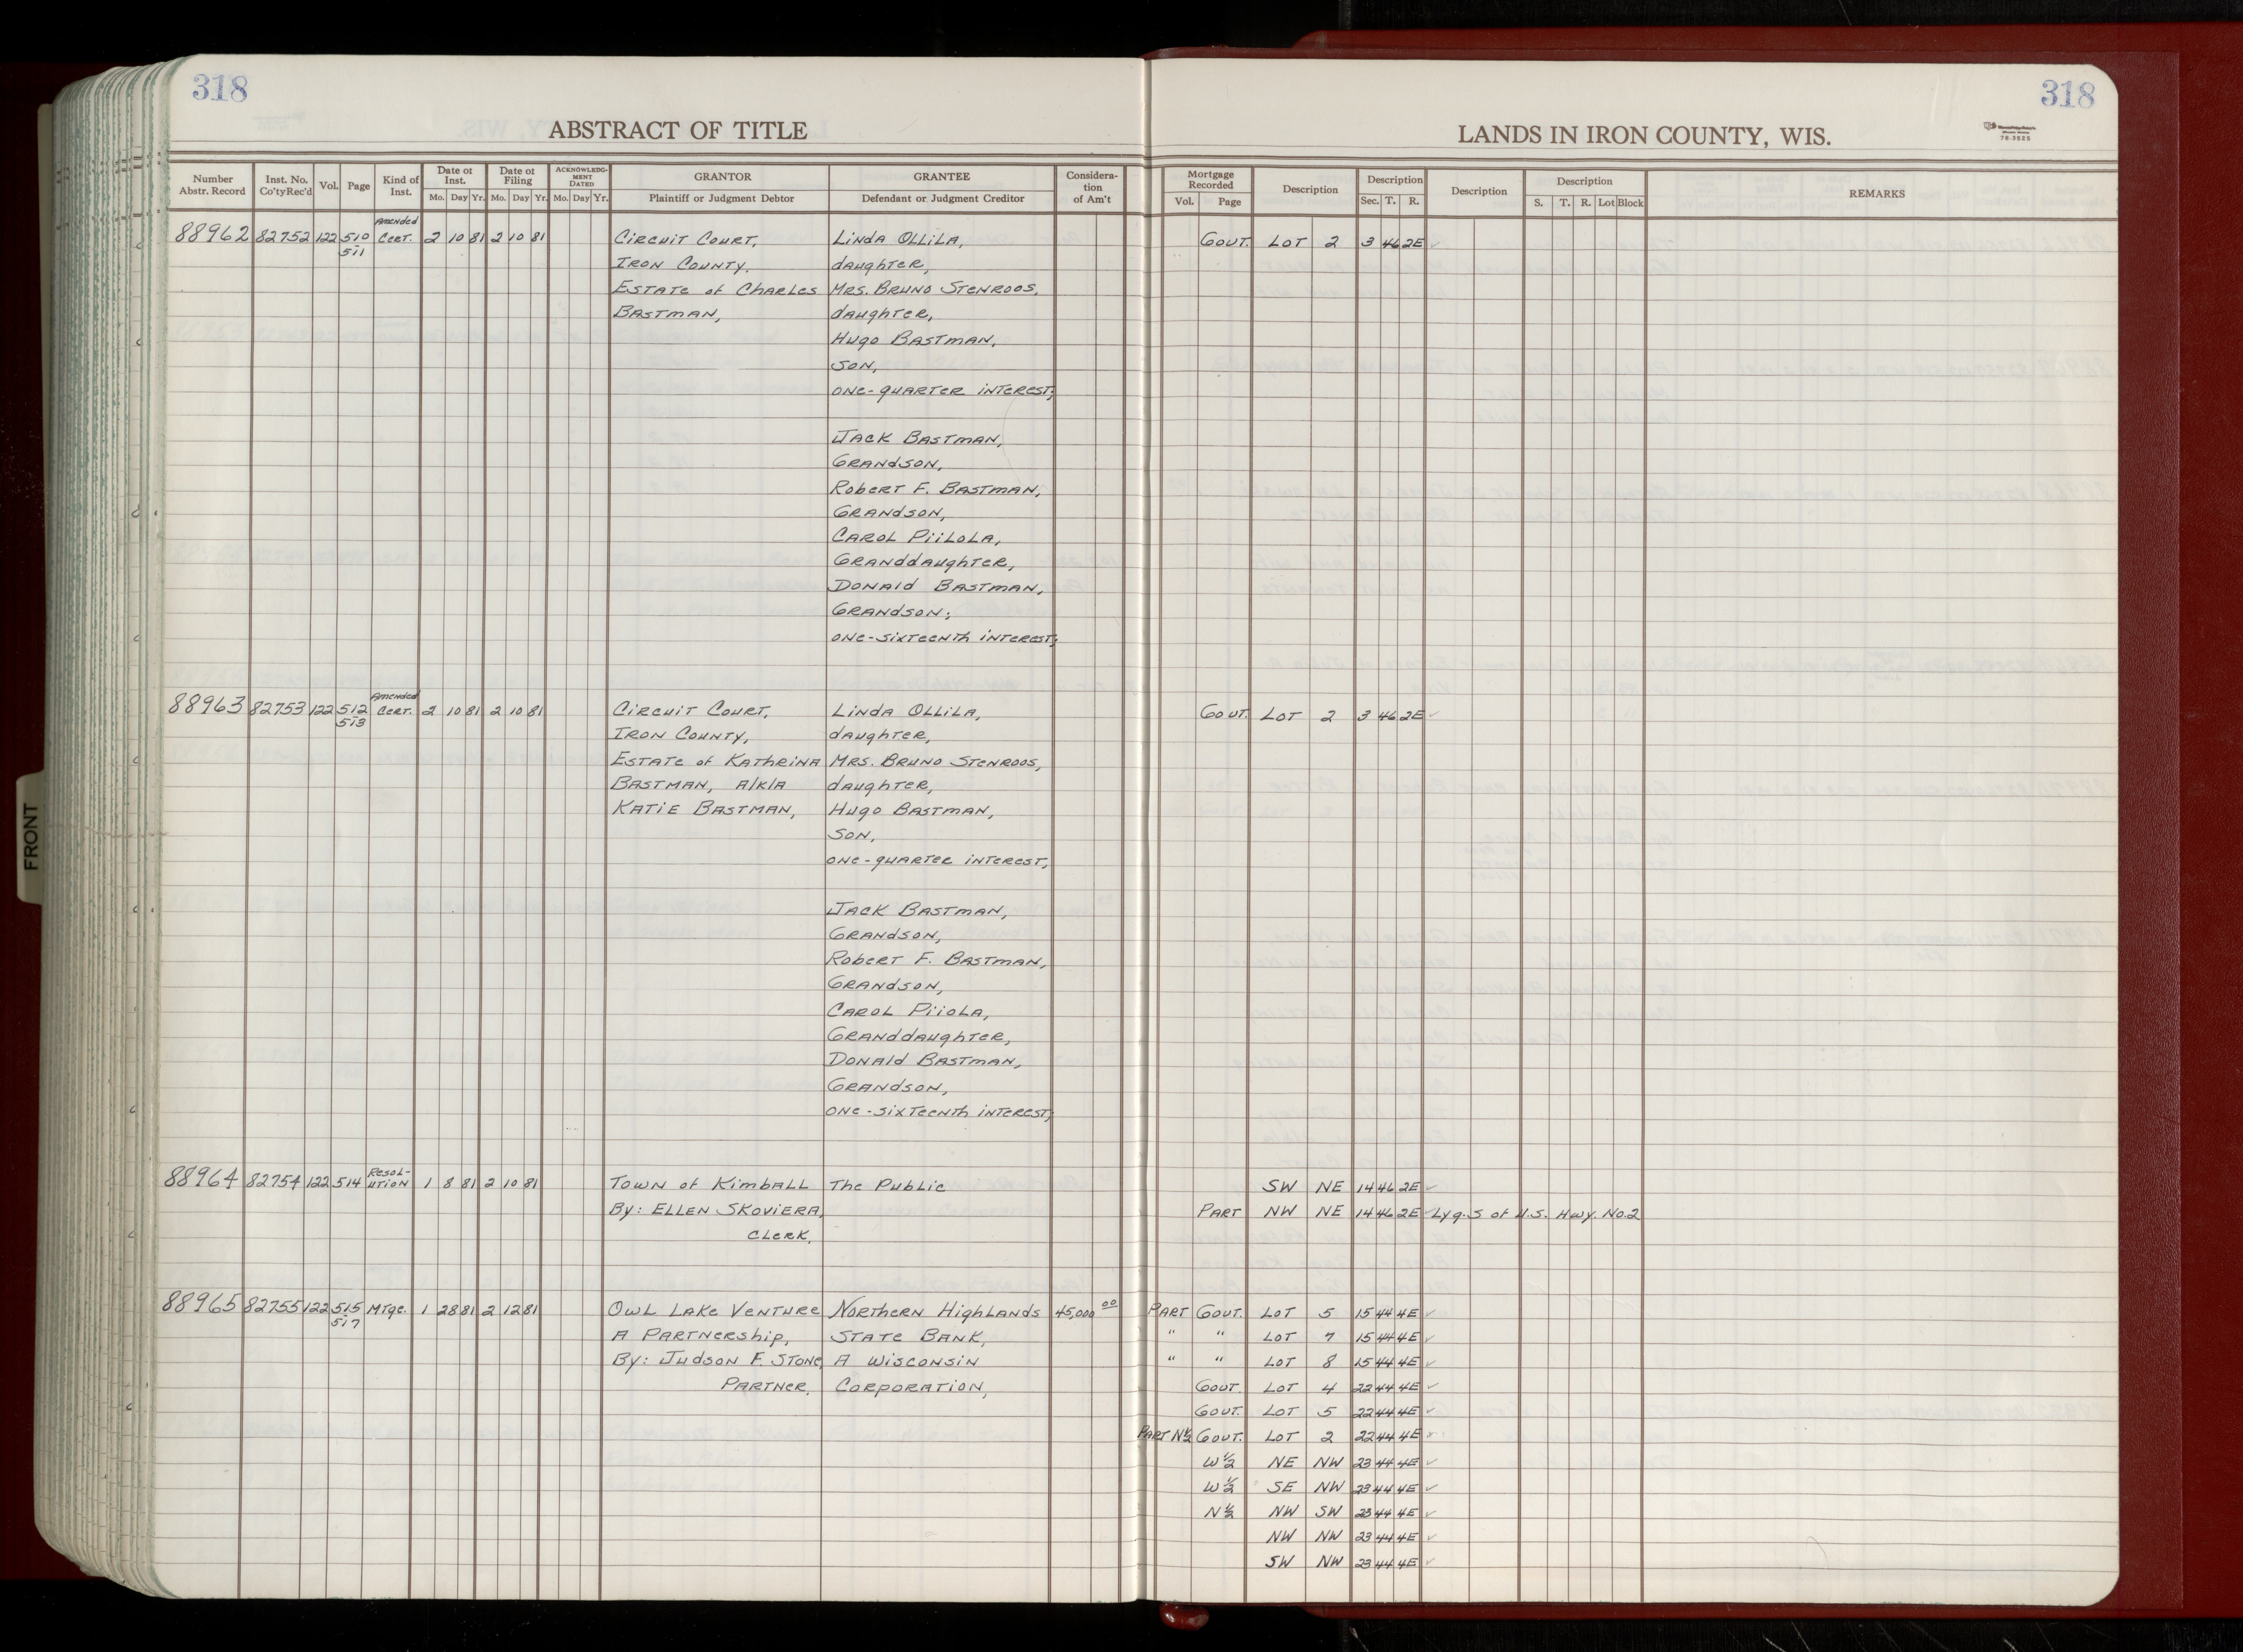 318
318
ABSTRACT OF TITLE
LANDS IN IRON COUNTY, WIS.
78-3525
Number Abstr. Record
Inst. No. Co'ty Rec'd
Vol.
Page
Kind of Inst.
Date of Inst.
Mo. Day Yr.
Date of Filing
Mo. Day Yr.
ACKNOWLEDGMENT DATED
Mo. Day Yr.
GRANTOR
Plaintiff or Judgment Debtor
GRANTEE
Defendant or Judgment Creditor
Consideration of Am't
Mortgage Recorded
Vol. Page
Description
Description
Sec. T. R.
Description
Description
S. T. R. Lot Block
REMARKS
Amended
88962 82752 122 510 Cert. 2 10 81 2 10 81 Circuit Court, Linda Ollila, Govt. Lot 2 3 46 2E ✓
511
Iron County. daughter,
Estate of Charles Mrs. Bruno Stenroos,
Bastman, daughter,
Hugo Bastman,
son,
one-quarter interest;
Jack Bastman,
Grandson,
Robert F. Bastman,
Grandson,
Carol Piilola,
Granddaughter,
Donald Bastman,
Grandson;
one-sixteenth interest;
Amended
88963 82753 122 512 Cert. 2 10 81 2 10 81 Circuit Court, Linda Ollila, Govt. Lot 2 3 46 2E ✓
513
Iron County, daughter,
Estate of Kathrina Mrs. Bruno Stenroos,
Bastman, A/K/A daughter,
Katie Bastman, Hugo Bastman,
son,
one-quarter interest,
Jack Bastman,
Grandson,
Robert F. Bastman,
Grandson,
Carol Piiola,
Granddaughter,
Donald Bastman,
Grandson,
one-sixteenth interest,
Resol-
88964 82754 122 514 ution 1 8 81 2 10 81 Town of Kimball The Public SW NE 14 46 2E ✓
By: Ellen Skoviera, Part NW NE 14 46 2E ✓ Lyg. S of U.S. Hwy. No. 2
Clerk.
88965 82755 122 515 Mtge. 1 28 81 2 12 81 Owl Lake Venture Northern Highlands 45,000 00 Part Govt. Lot 5 15 44 4E ✓
517
A Partnership, State Bank, " " Lot 7 15 44 4E ✓
By: Judson F. Stone A Wisconsin " " Lot 8 15 44 4E ✓
Partner. Corporation, Govt. Lot 4 22 44 4E ✓
Govt. Lot 5 22 44 4E ✓
Part N½ Govt. Lot 2 22 44 4E ✓
W½ NE NW 23 44 4E ✓
W½ SE NW 23 44 4E ✓
N½ NW SW 23 44 4E ✓
NW NW 23 44 4E ✓
SW NW 23 44 4E ✓
FRONT